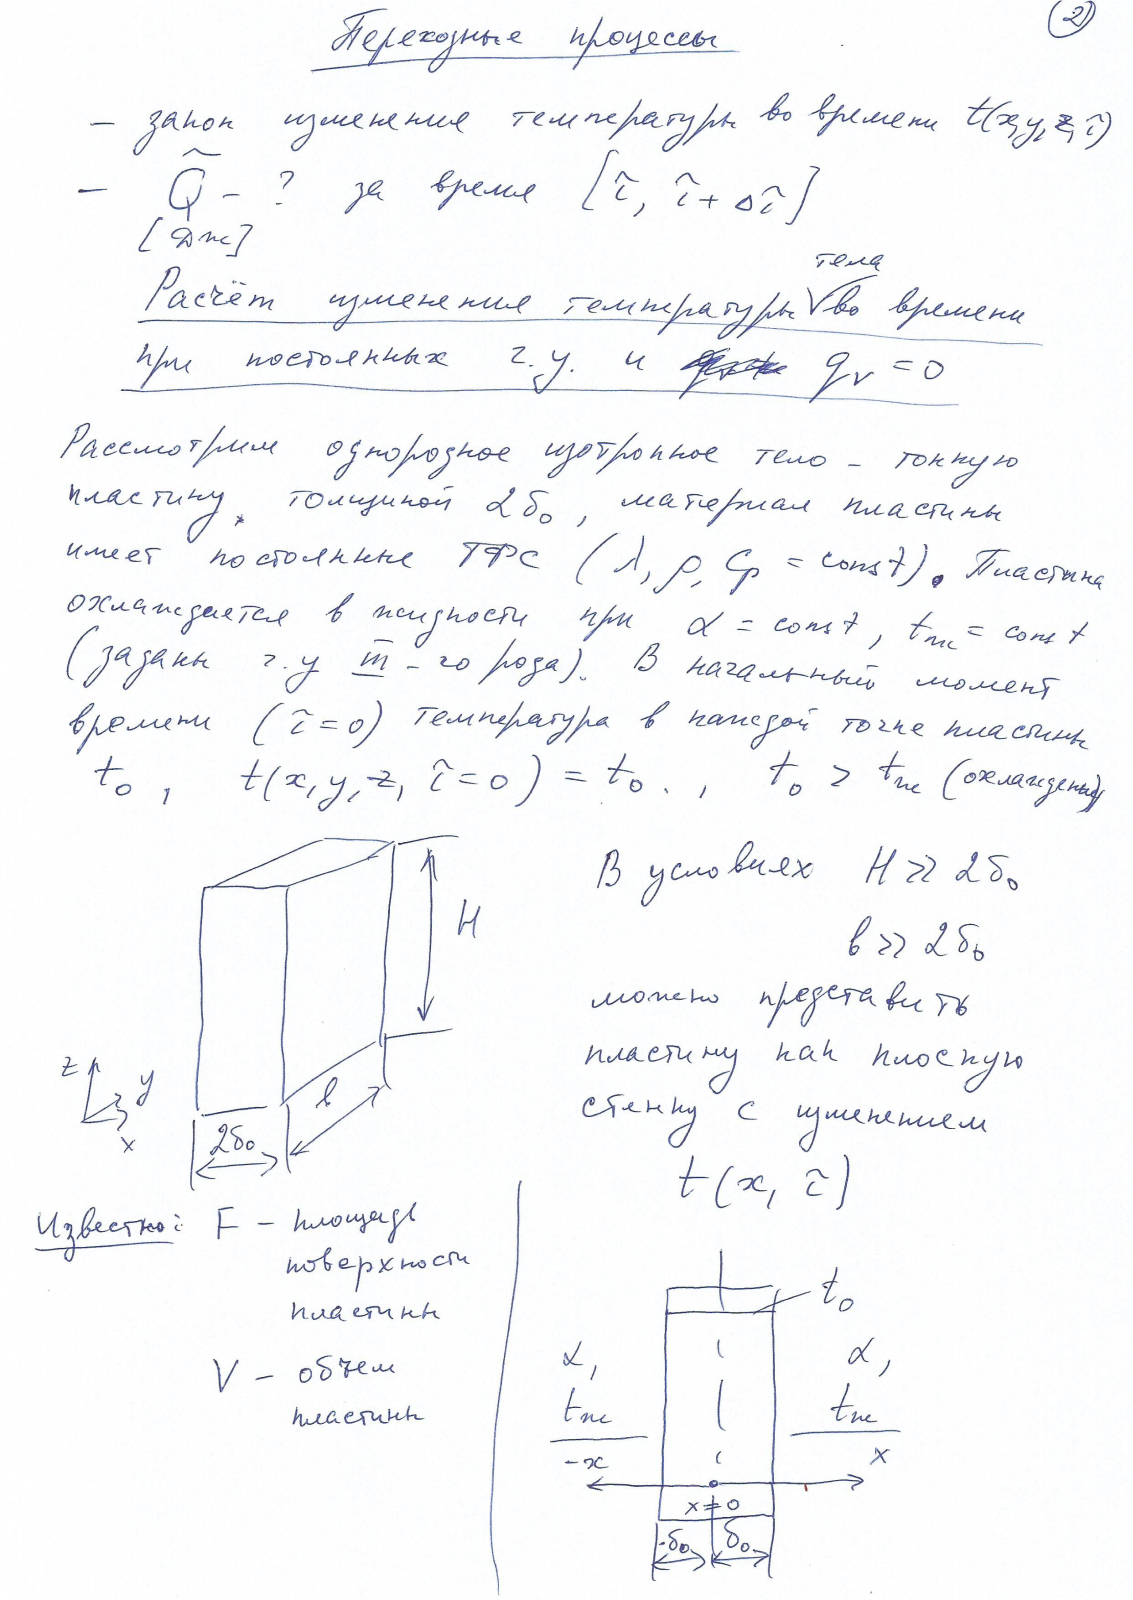 (2)
Переходные процессы
– закон изменения температуры во времени t(x,y,z,τ)
– Q̃ – ? за время [τ, τ+Δτ]
[Дж]
тела
Расчёт изменения температуры во времени
при постоянных г.у. и qv = 0
Рассмотрим однородное изотропное тело – тонкую
пластину, толщиной 2δ₀, материал пластины
имеет постоянные ТФС (λ, ρ, Cp = const). Пластина
охлаждается в жидкости при α = const, tж = const
(заданы г.у III-го рода). В начальный момент
времени (τ=0) температура в каждой точке пластины
t₀, t(x,y,z, τ=0) = t₀., t₀ > tж (охлаждение)
В условиях H ≫ 2δ₀
H
в ≫ 2δ₀
можно представить
пластину как плоскую
z y
x
в
стенку с изменением
2δ₀
t(x, τ)
Известно: F – площадь
поверхности
пластины
V – объем
пластины
t₀
α, α,
tж tж
-x x
x = 0
-δ₀ δ₀